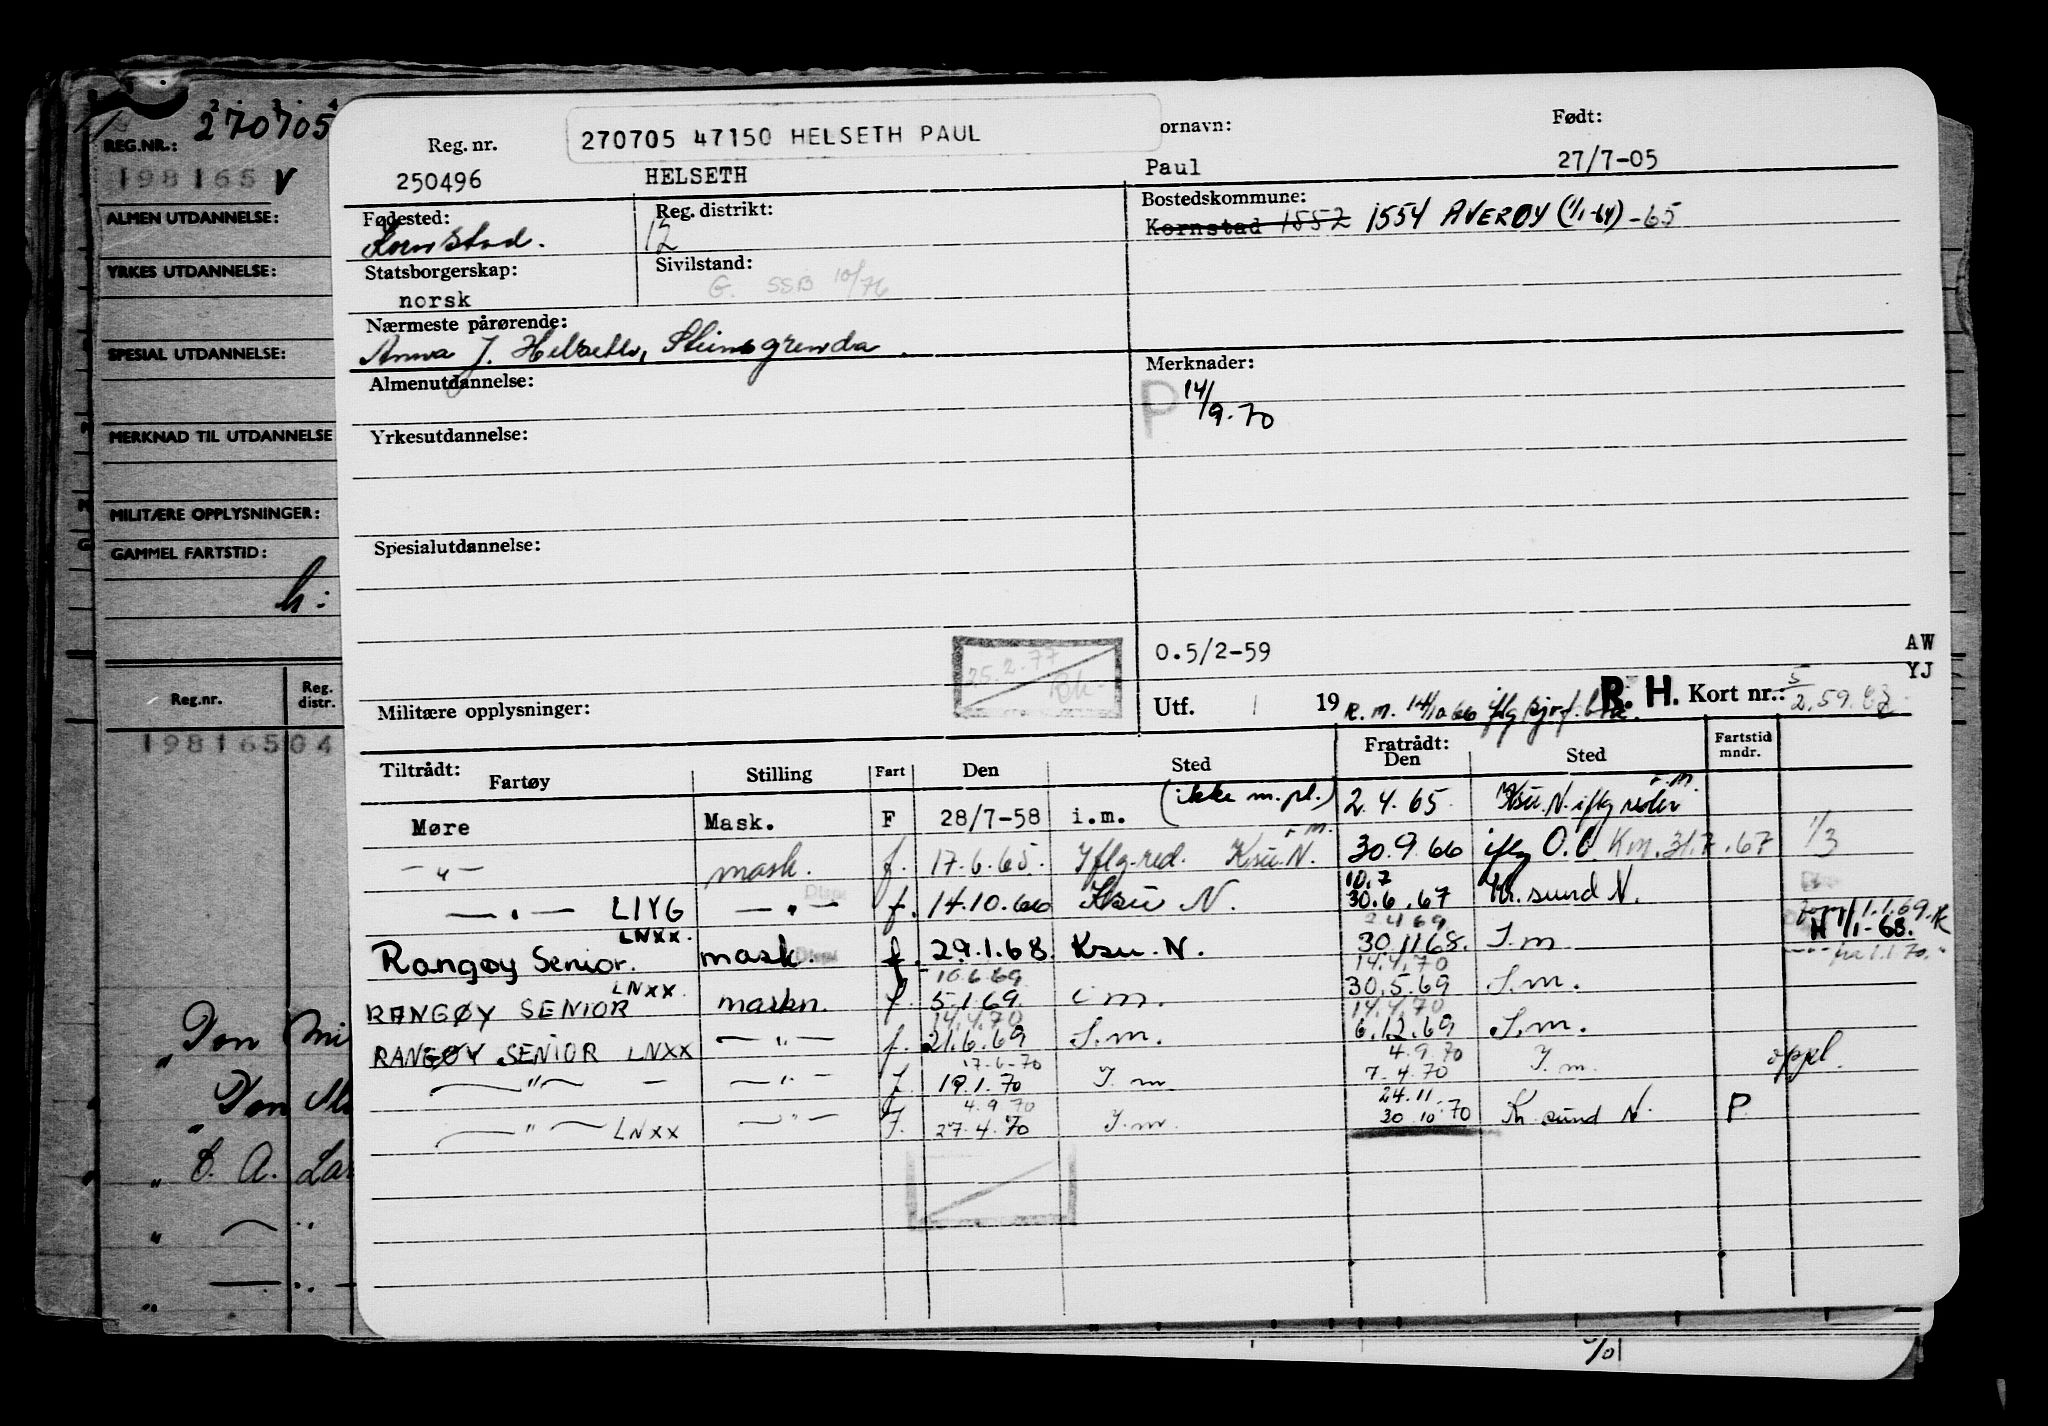 270705
REG.NR.:
198165 V
ALMEN UTDANNELSE:
YRKES UTDANNELSE:
SPESIAL UTDANNELSE:
MERKNAD TIL UTDANNELSE
MILITÆRE OPPLYSNINGER:
GAMMEL FARTSTID:
h:
Reg.nr. Reg. distr.
198165 04
" Don Mi
" Don
" C. A. Lar
270705 47150 HELSETH PAUL
Reg. nr. ornavn: Født:
250496 HELSETH Paul 27/7-05
Fødested: Reg. distrikt: Bostedskommune:
Kornstad. 12 Kornstad 1552 1554 AVERØY (1/1-64) -65
Statsborgerskap: Sivilstand:
norsk G. SSB 10/76
Nærmeste pårørende:
Anna J. Helseth, Steinsgrenda.
Almenutdannelse: Merknader:
P 14/9.70
Yrkesutdannelse:
Spesialutdannelse:
25.2.77
0.5/2-59 AW
YJ
Militære opplysninger: Utf. 19 R.M. 14/10 66 iflg R. H. Kort nr.: 5/2.59.
Tiltrådt: Fratrådt:
Fartøy Stilling Fart Den Sted Den Sted Fartstid mndr.
Møre Mask. F 28/7-58 i.m. (ikke m.pl.) 2.4.65 Ksu.N. iflg reder
— " — mask. f. 17.6.65. Iflg.red. Ksu.N. 30.9.66 iflg O.C. Km.31.7.67 1/3
10.7
— " — LIYG — " — f. 14.10.66 Ksu N. 30.6.67 Kr.sund N.
LNXX. 2.4.69 1.1.69.
Rangøy Senior. mask. f. 29.1.68. Ksu. N. 30.11.68. I.m H 1/1-68.
10.6.69 14.4.70 1.1.70.
LNXX.
RANGØY SENIOR maskn. f. 5.1.69. i m. 30.5.69 I.m.
14.4.70 14.4.70
RANGØY SENIOR LNXX — " — f. 21.6.69 I.m. 6.12.69 I.m.
17-6-70 4.9.70
— " — — — " — f. 19.1.70 I.m 7-4.70 I.m. oppl.
4.9.70 24.11.
— " — LNXX — " — f. 27.4.70 I.m. 30.10.70 Kr.sund N. P